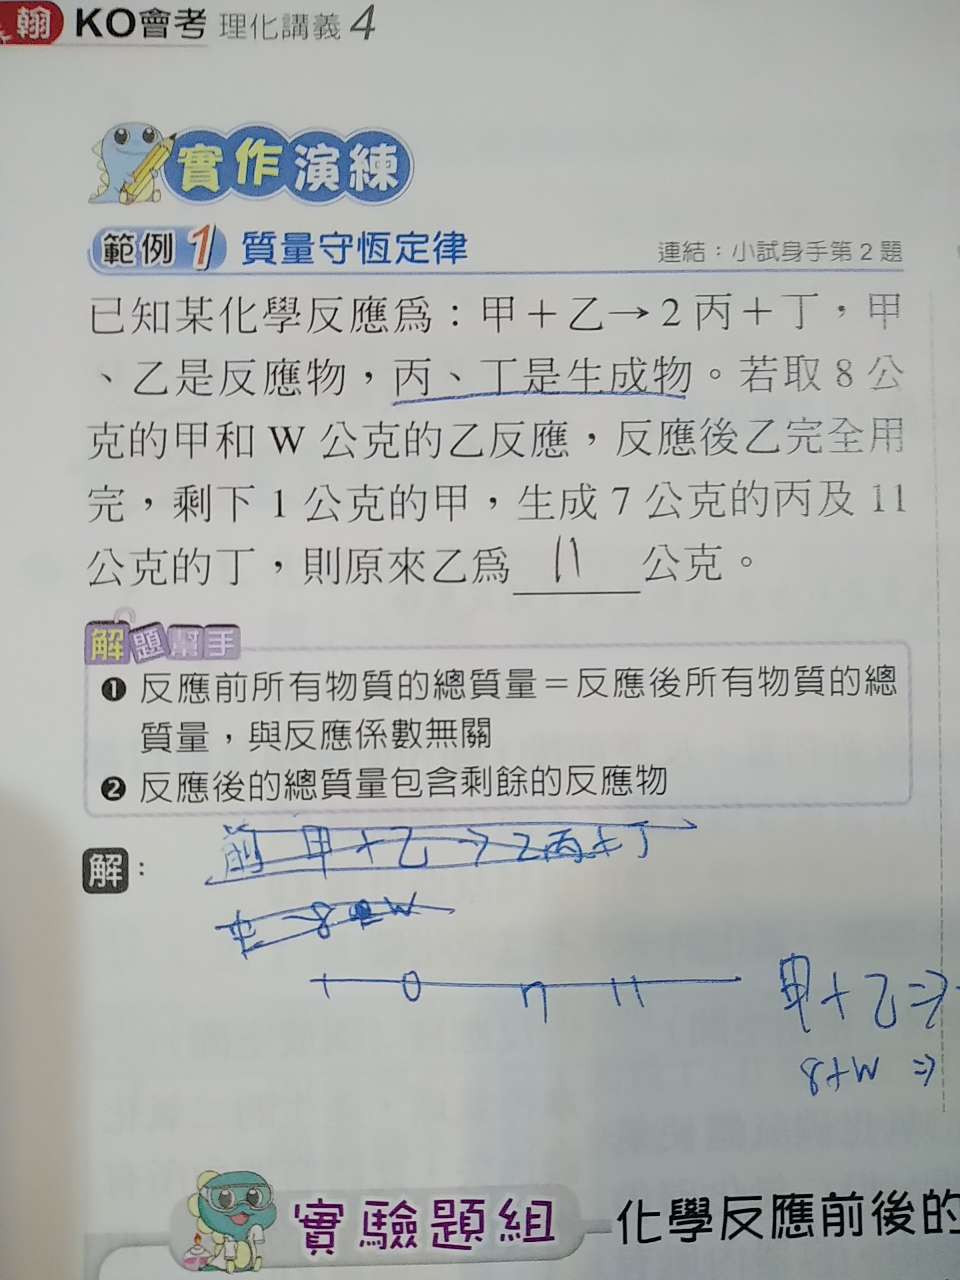 翰 KO會考 理化講義 4
實作演練
範例 1 質量守恆定律 連結：小試身手第 2 題
已知某化學反應為：甲＋乙→2 丙＋丁，甲
、乙是反應物，丙、丁是生成物。若取 8 公
克的甲和 W 公克的乙反應，反應後乙完全用
完，剩下 1 公克的甲，生成 7 公克的丙及 11
公克的丁，則原來乙為 11 公克。
解題幫手
❶ 反應前所有物質的總質量＝反應後所有物質的總
質量，與反應係數無關
❷ 反應後的總質量包含剩餘的反應物
解：
前 甲＋乙→2丙＋丁
8 W
1 0 7 11
甲＋乙＝
8＋W ＝
實驗題組 化學反應前後的